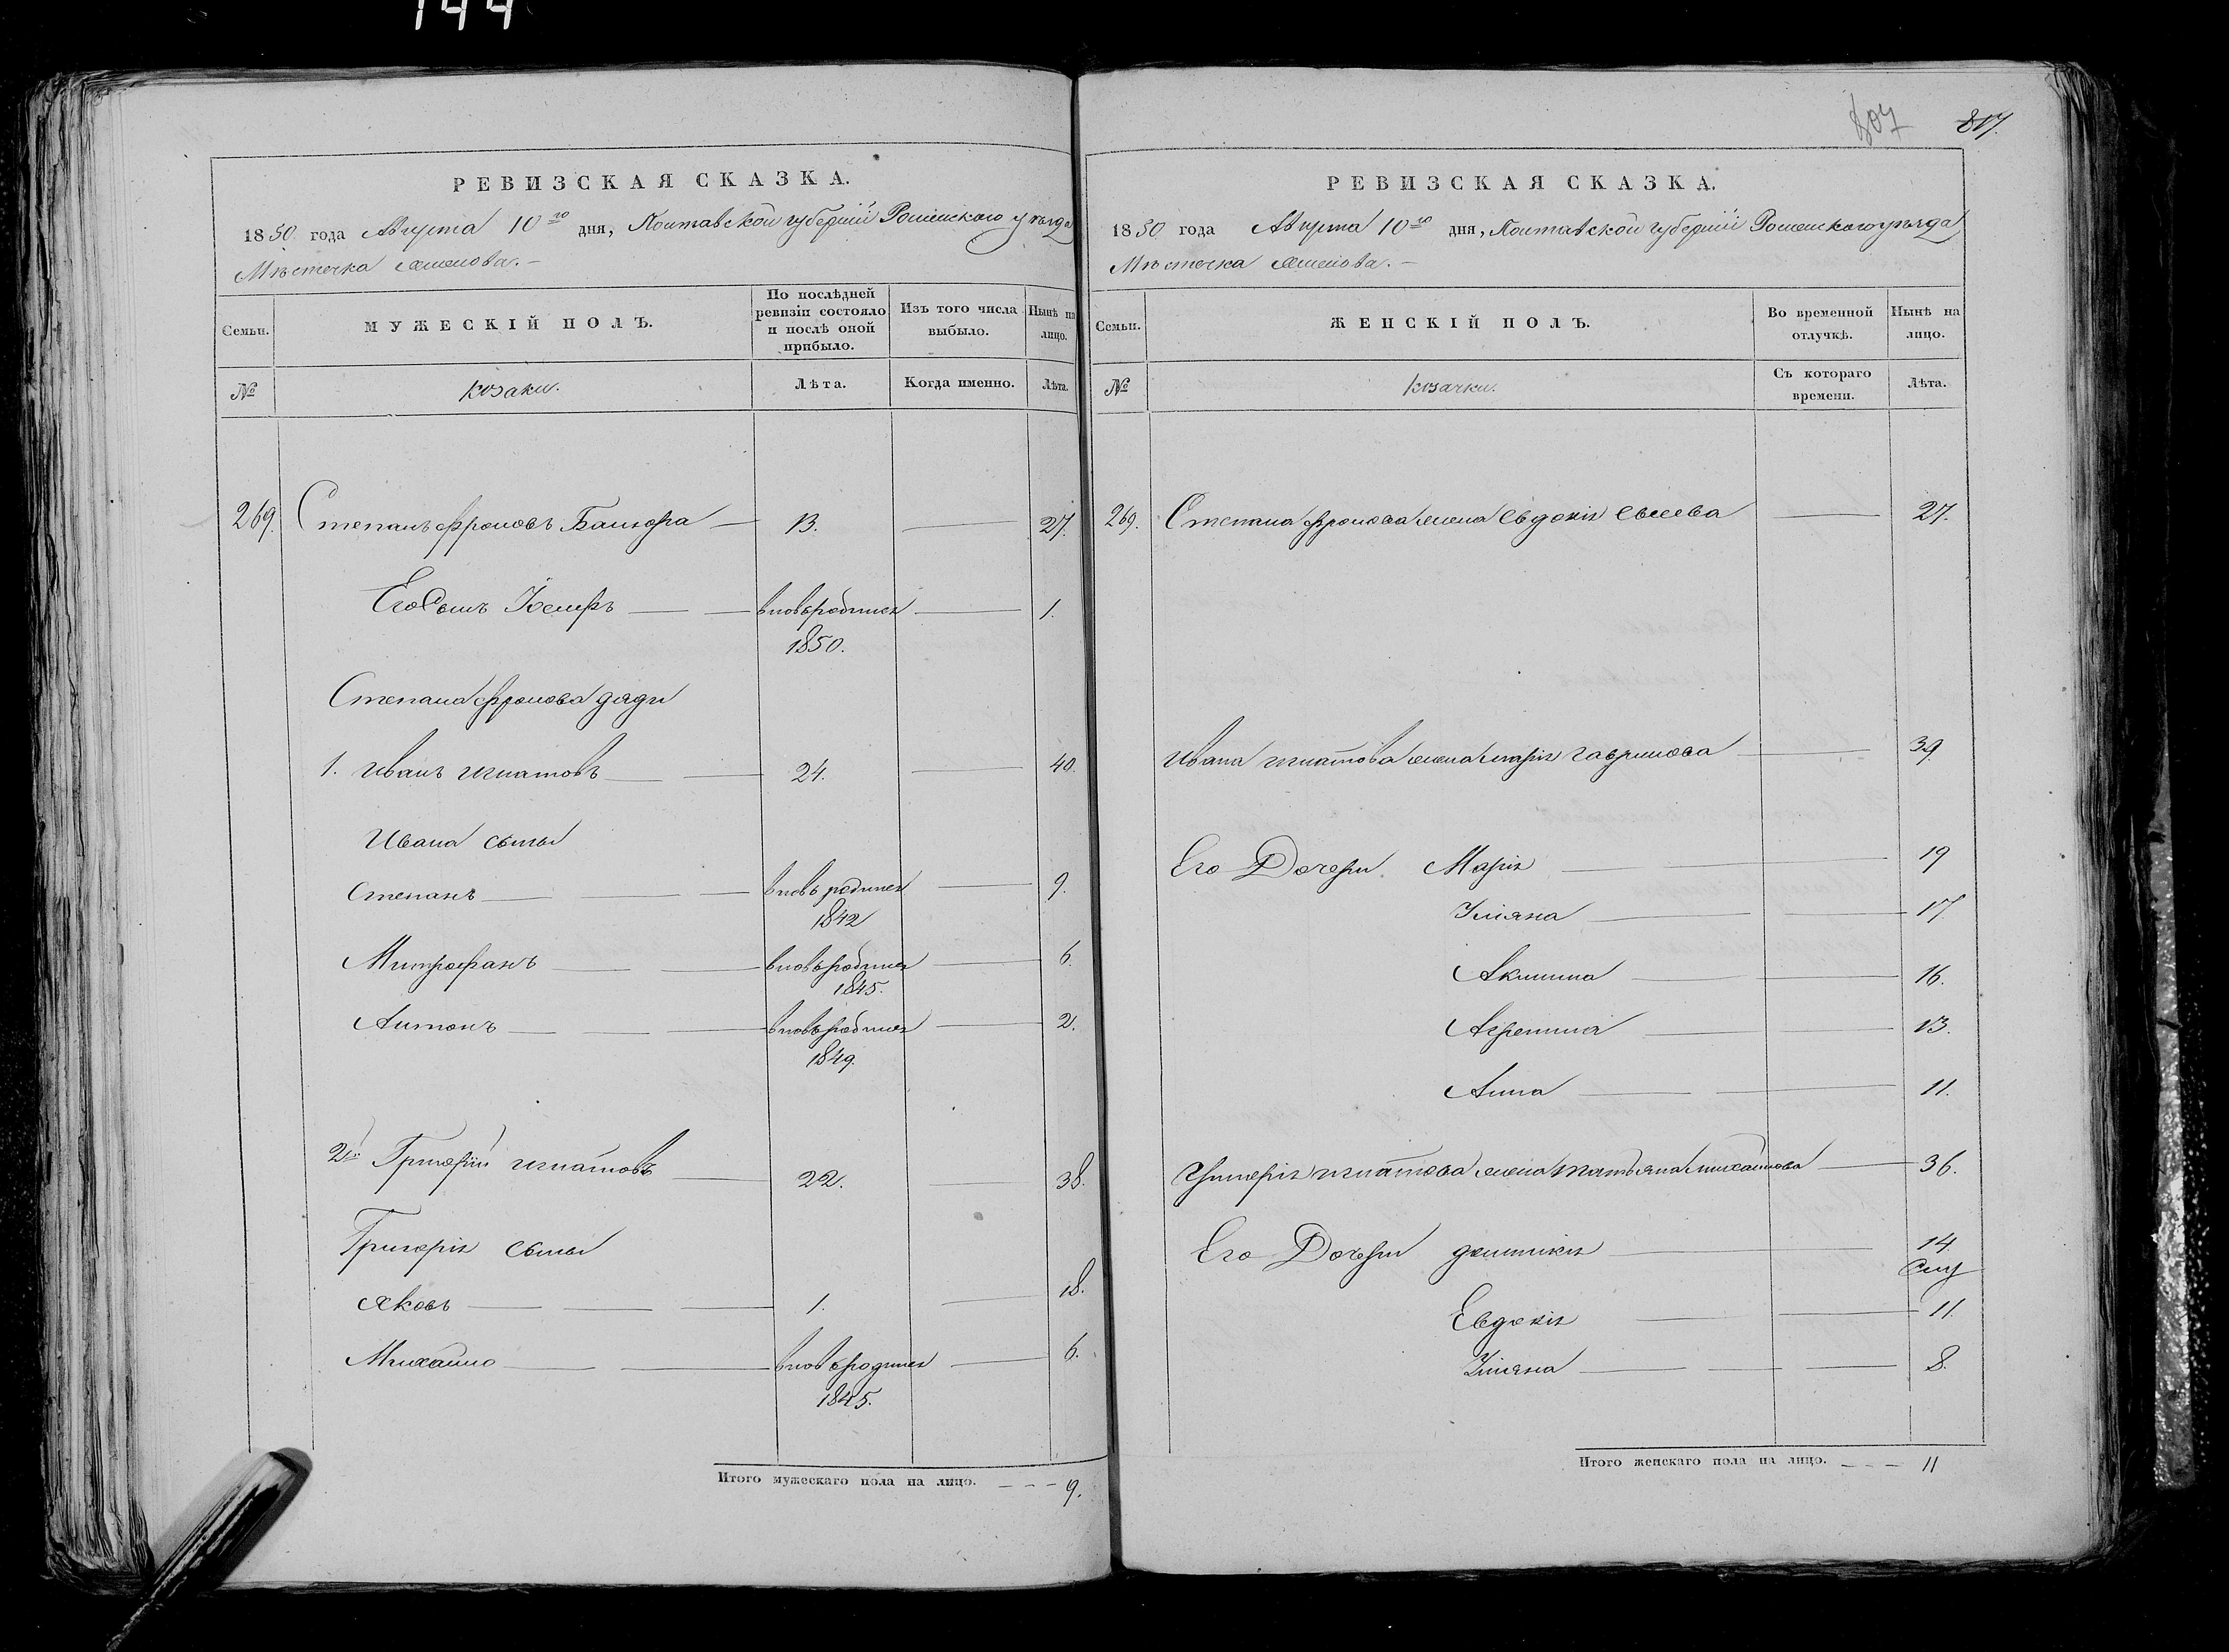 144
РЕВИЗСКАЯ СКАЗКА.
1850 года Августа 10го дня, Полтавской губерніи Роменского уѣзда
Мѣстечка
Семьи.
МУЖЕСКІЙ ПОЛЪ.
По послѣдней ревизіи состояло и послѣ оной прибыло.
Изъ того числа выбыло.
Нынѣ на лицо.
№
козаки.
Лѣта.
Когда именно.
Лѣта.
269. Степанъ Фроловъ 13. 27.
Его Сынъ Іосифъ вновьродился 1.
1850.
Степана Фролова дяди
1. Иванъ Игнатовъ 24. 40.
Ивана сыны
Степанъ вновь родился 9.
1842
Митрофанъ вновьродился 6.
1845.
Антонъ вновьродился 2.
1849.
2й Григорій Игнатовъ 22. 38.
Григорія сыны
Яковъ 1. 18.
Михайло вновьродился 6.
1845.
Итого мужескаго пола на лицо. 9.
807 817.
РЕВИЗСКАЯ СКАЗКА.
1850 года Августа 10го дня, Полтавской губерніи Роменского уѣзда
Мѣстечка
Семьи.
ЖЕНСКІЙ ПОЛЪ.
Во временной отлучкѣ.
Нынѣ на лицо.
№
козачки.
Съ котораго времени.
Лѣта.
269. Степана Фролова жена Евдокія Евсеева 27.
Ивана Игнатова жена Марія Гаврилова 39.
Его Дочери Марія 19
Уліяна 17.
Акилина 16.
Агрепина 13.
Анна 11.
Григорія Игнатова жена Татьяна Михайлова 36.
Его Дочери 14
Евдокія 11.
Уліяна 8.
Итого женскаго пола на лицо. 11